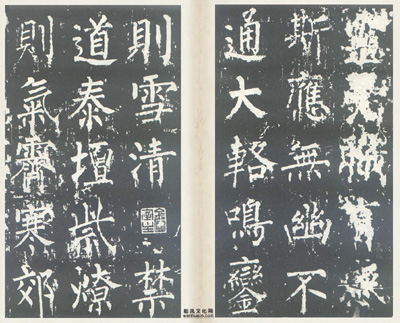 有感
斯應無幽不
通大輅鳴鑾
則雪清禁
道泰壇祡燎
則氣霽寒郊